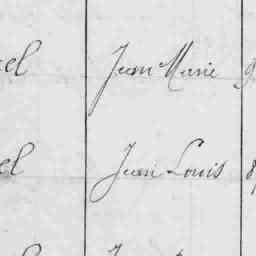 el Jean Marie
el Jean Louis